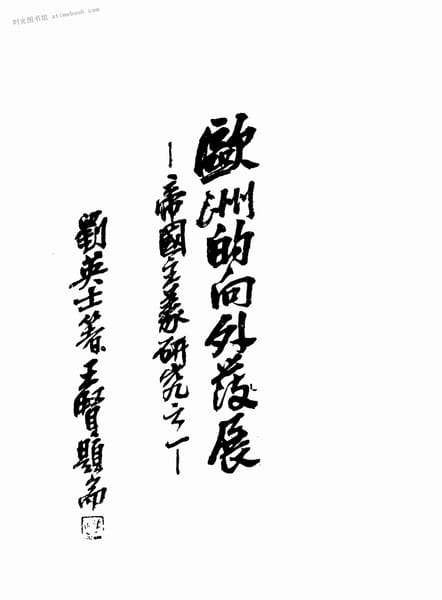 时光图书馆 xtimebook.com
歐洲的向外發展
—帝國主義研究之一—
劉英士著 王賢題耑